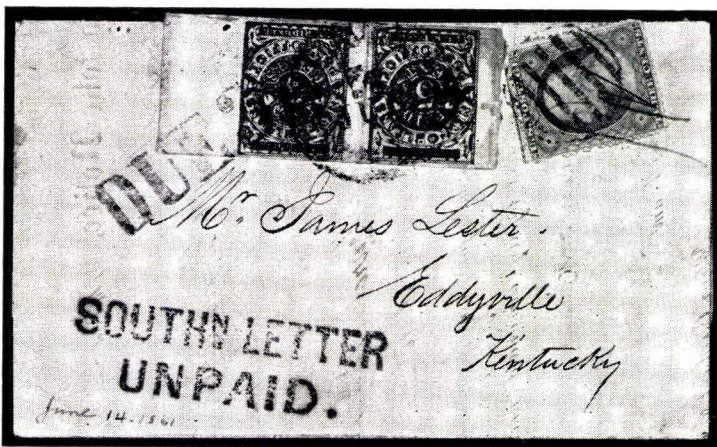 DUE
Mr. James Lester.
Eddyville
Kentucky
SOUTHN LETTER
UNPAID.
June 14. 1861.